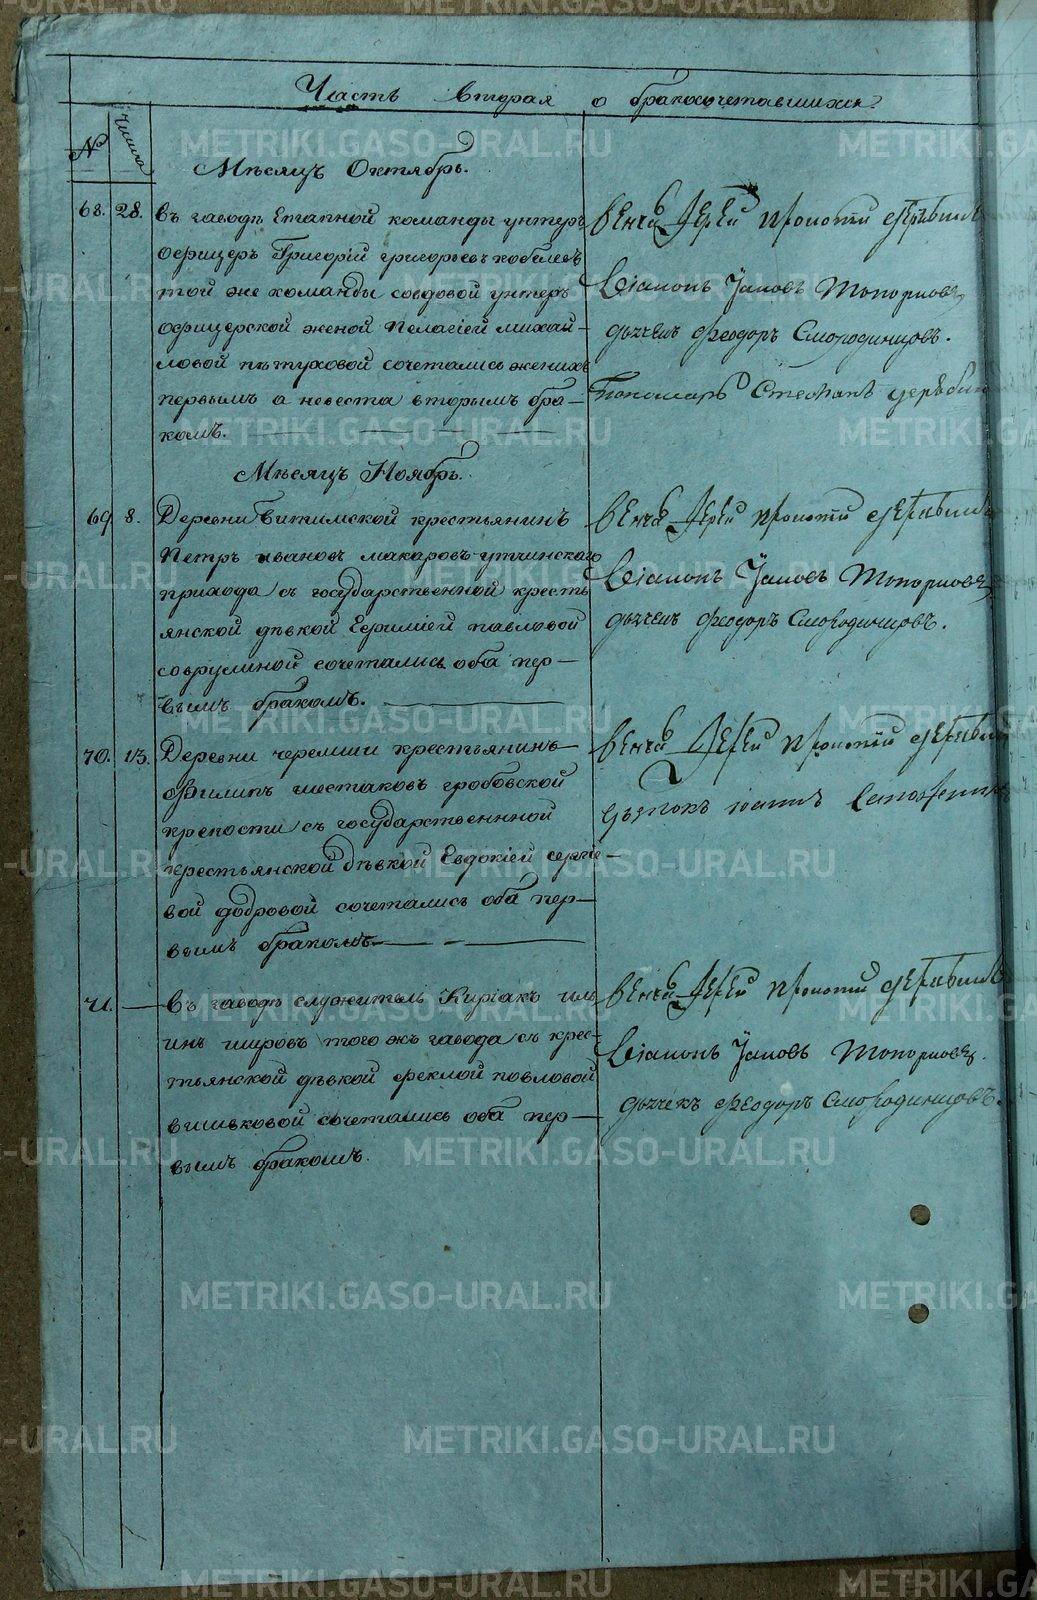 Часть вторая о бракосочетавшихся
№
Число
Мѣсяцъ Октябрь.
68. 28. въ заводѣ Етапной команды унтеръ
офицеръ Григорій григорьевъ кобелевъ
той же команды вдовой унтеръ
офицерской женой Пелагіей михай-
ловой пѣтуховой сочетались женихъ
первымъ а невеста вторымъ бра-
комъ.
венча Іерей
Діаконъ Іаковъ Топорковъ
дьячекъ Феодоръ Смородинцовъ.
Пономарь Стефанъ
Мѣсяцъ Ноябрь.
69 8. Деревни Битимской крестьянинъ
Петръ ивановъ макаровъ утчинскаго
прихода съ государственной кресть
янской дѣвкой Ефиміей павловой
сочетались оба пер-
вымъ бракомъ.
венча Іерей
Діаконъ Іаковъ Топорковъ
дьячекъ Феодоръ Смородинцовъ.
70. 13. Деревни черемши крестьянинъ
Филипъ шестаковъ гробовской
крепости съ государственнной
крестьянской дѣвкой Евдокіей сергіе-
вой добровой сочетались оба пер-
вымъ бракомъ
венча Іерей
71. — Въ заводѣ служитель Киріакъ
шировъ того жъ завода съ крес-
тьянской дѣвкой феклой повловой
вишвковой сочетались оба пер-
вымъ бракомъ.
венча Іерей
Діаконъ Іаковъ Топорковъ.
дьячекъ Феодоръ Смородинцовъ.
METRIKI.GASO-URAL.RU